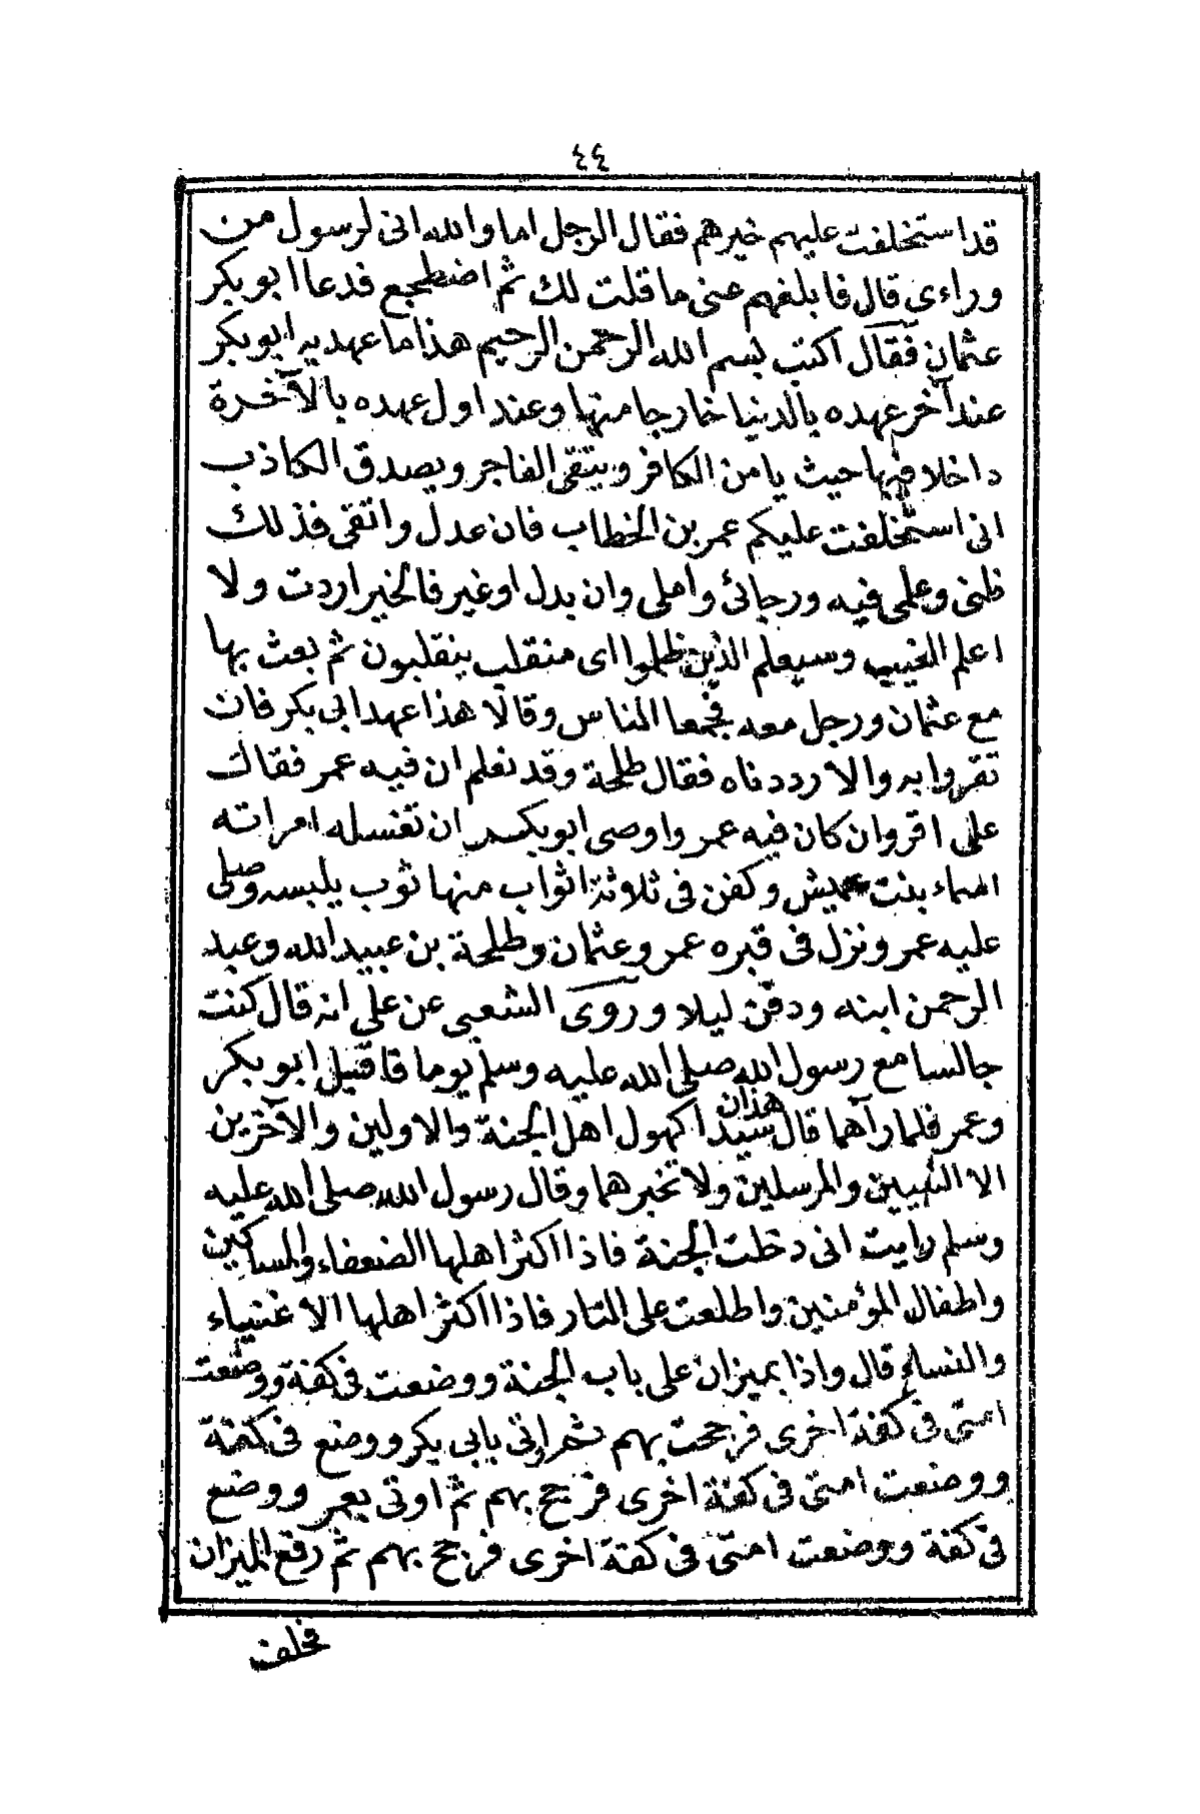 ٤٤
قد استخلفت عليهم خيرهم فقال الرجل اما والله انى لرسول من
وراءى قال فابلغهم عنى ما قلت لك ثم اضطجع فدعا ابو بكر
عثمان فقال اكتب بسم الله الرحمن الرحيم هذا ما عهد به ابو بكر
عند آخر عهده بالدنيا خارجا منها وعند اول عهده بالآخرة
داخلا فيها حيث يامن الكافر ويتقى الفاجر ويصدق الكاذب
انى استخلفت عليكم عمر بن الخطاب فان عدل واتقى فذلك
ظنى وعلمى فيه ورجائ واملى وان بدل او غير فالخير اردت ولا
اعلم الغيب وسيعلم الذين ظلموا اى منقلب ينقلبون ثم بعث بها
مع عثمان ورجل معه فجمعا الناس وقالا هذا عهد ابى بكر فان
تقروا به والا رددناه فقال طلحة وقد نعلم ان فيه عمر فقال
على اقر وان كان فيه عمر واوصى ابو بكر ان تغسله امراته
اسماء بنت عميش وكفن فى ثلاثة اثواب منها ثوب يلبسه وصلى
عليه عمر ونزل فى قبره عمر وعثمان وطلحة بن عبيد الله وعبد
الرحمن ابنه ودفن ليلا وروى الشعبى عن على انه قال كنت
جالسا مع رسول الله صلى الله عليه وسلم يوما فاقبل ابو بكر
وعمر فلما رآهما قال هذان سيدا كهول اهل الجنة والاولين والآخرين
الا النبيين والمرسلين ولا تخبرهما وقال رسول الله صلى الله عليه
وسلم رايت انى دخلت الجنة فاذا اكثر اهلها الضعفاء والمساكين
واطفال المؤمنين واطلعت على النار فاذا اكثر اهلها الاغنياء
والنساء قال واذا بميزان على باب الجنة ووضعت فى كفة ووضعت
امتى فى كفة اخرى فرجحت بهم ثم اوتى بابى بكر ووضع فى كفة
ووضعت امتى فى كفة اخرى فرجح بهم ثم اوتى بعمر ووضع
فى كفة ووضعت امتى فى كفة اخرى فرجح بهم ثم رفع الميزان
فخلف